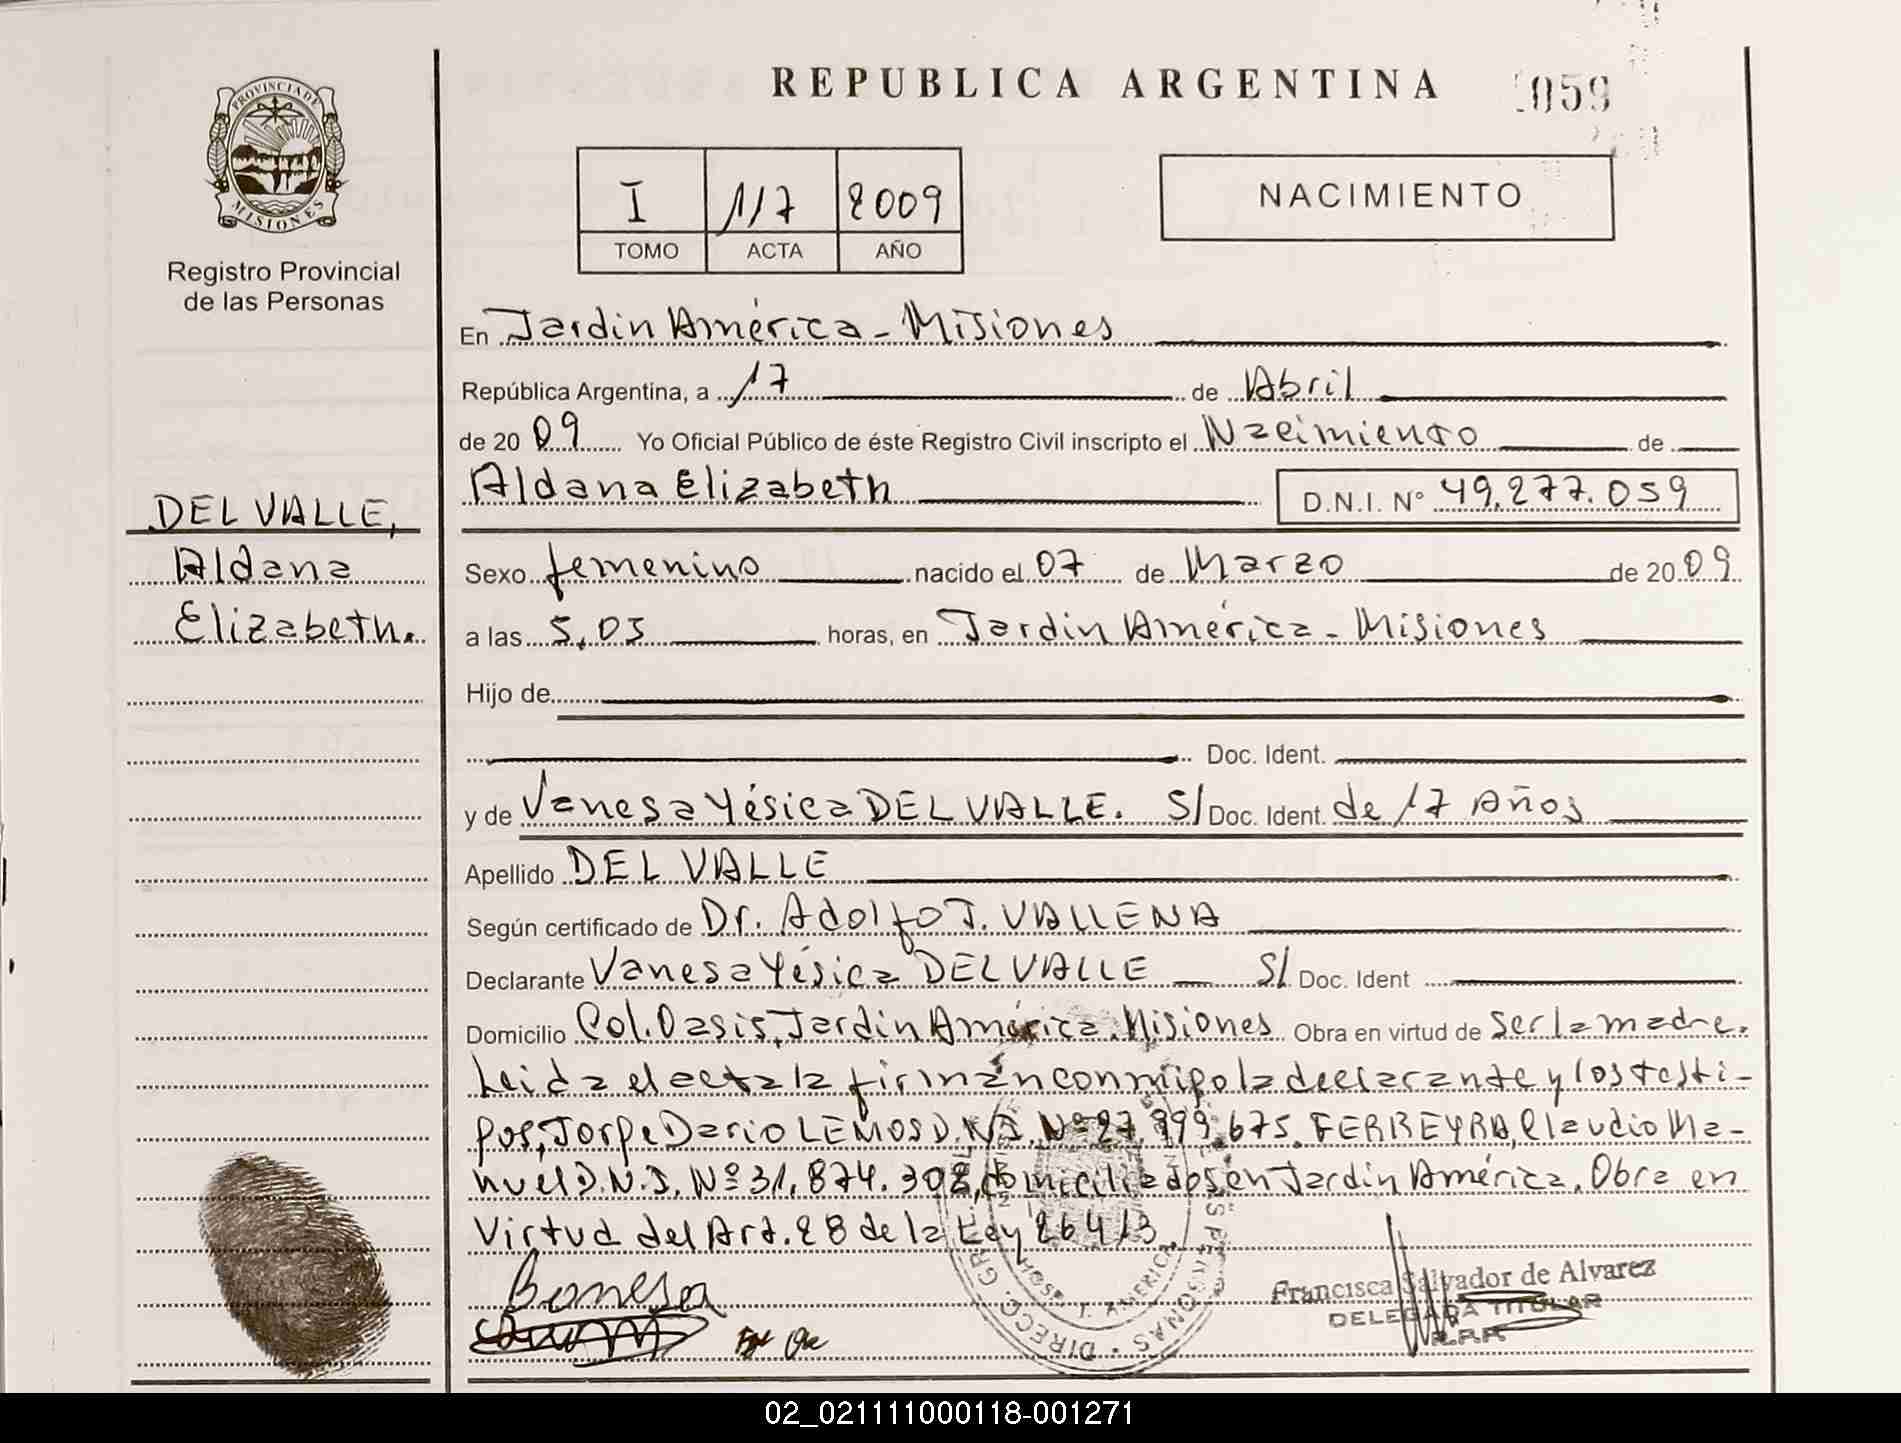 REPUBLICA ARGENTINA
059
PROVINCIA DE
MISIONES
Registro Provincial
de las Personas
I 117 2009
TOMO ACTA AÑO
NACIMIENTO
En Jardin América - Misiones
República Argentina, a 17 de Abril
de 2009 Yo Oficial Público de éste Registro Civil inscripto el Nacimiento de
Aldana Elizabeth D.N.I. N° 49.277.059
DEL VALLE,
Aldana
Elizabeth.
Sexo femenino nacido el 07 de Marzo de 2009
a las 5,05 horas, en Jardin América - Misiones
Hijo de
Doc. Ident.
y de Vanesa Yésica DEL VALLE. S/ Doc. Ident. de 17 Años
Apellido DEL VALLE
Según certificado de Dr. Adolfo J. VALLENA
Declarante Vanesa Yésica DEL VALLE S/ Doc. Ident
Domicilio Col. Oasis, Jardin América. Misiones Obra en virtud de ser la madre.
Leida el acta la firman conmigo la declarante y los testi-
gos, Jorge Dario LEMOS D.N.I. Nº 27.999.675. FERREYRA, Claudio Ma-
nuel D.N.I. Nº 31.874.308, domiciliados en Jardin América. Obra en
Virtud del Art. 28 de la Ley 26413
Francisca Salvador de Alvarez
DELEGADA TITULAR
R.P.P.
02_021111000118-001271